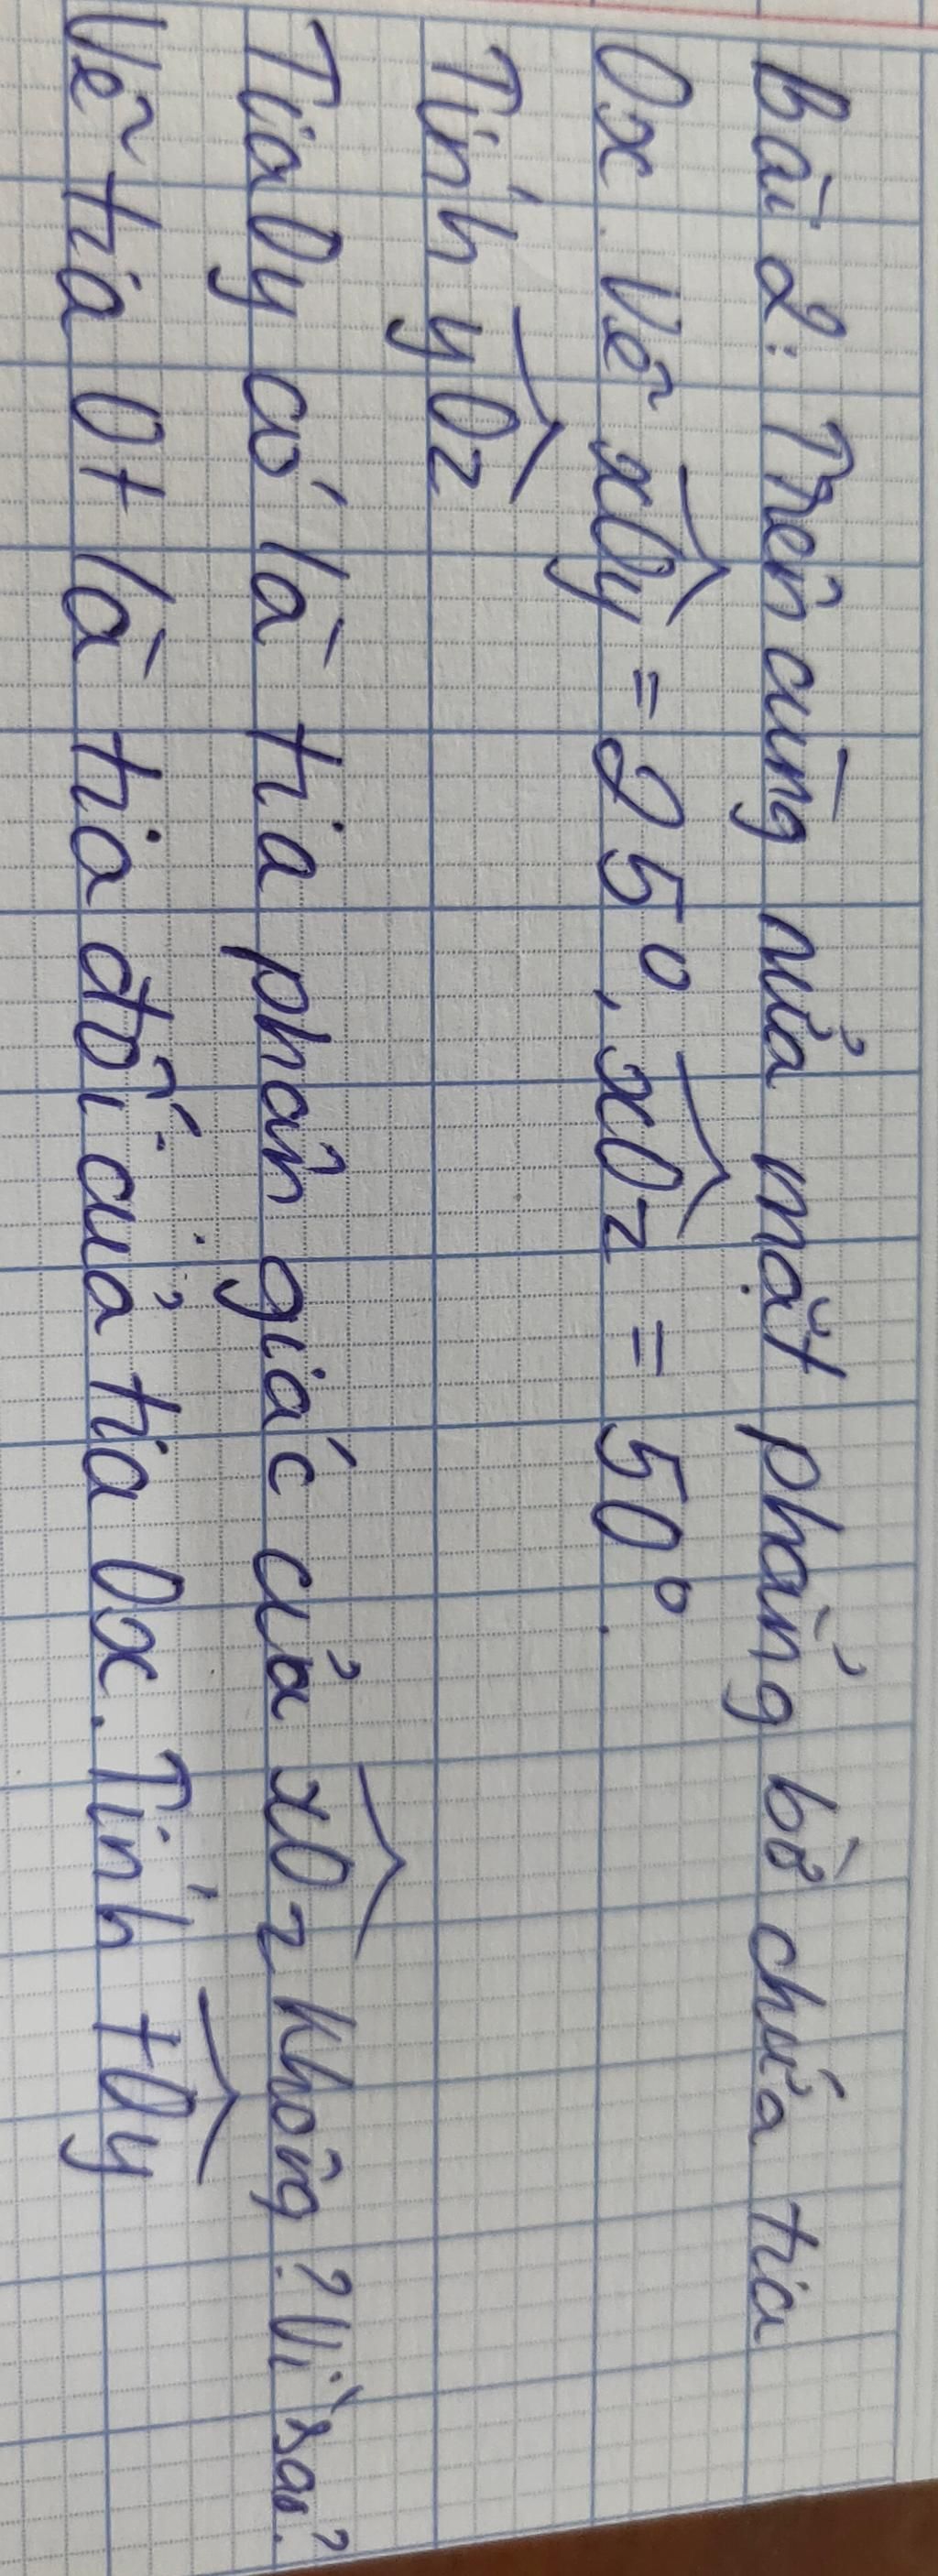 Bài 2: Trên cùng nửa mặt phẳng bờ chứa tia
Ox. Vẽ xOy = 25°, xOz = 50°.
Tính yOz
Tia Oy có là tia phân giác của xOz không? Vì sao?
Vẽ tia Ot là tia đối của tia Ox. Tính tOy